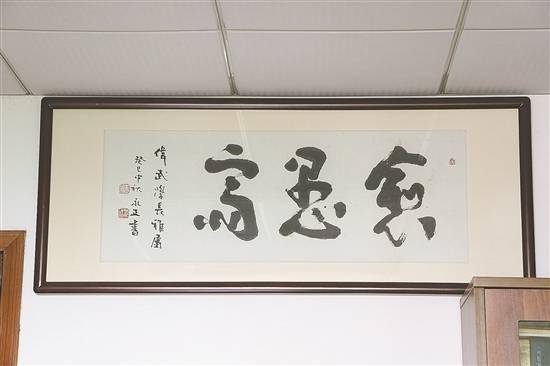 愈愚齋
偉武學長雅屬
癸巳中秋 永正書